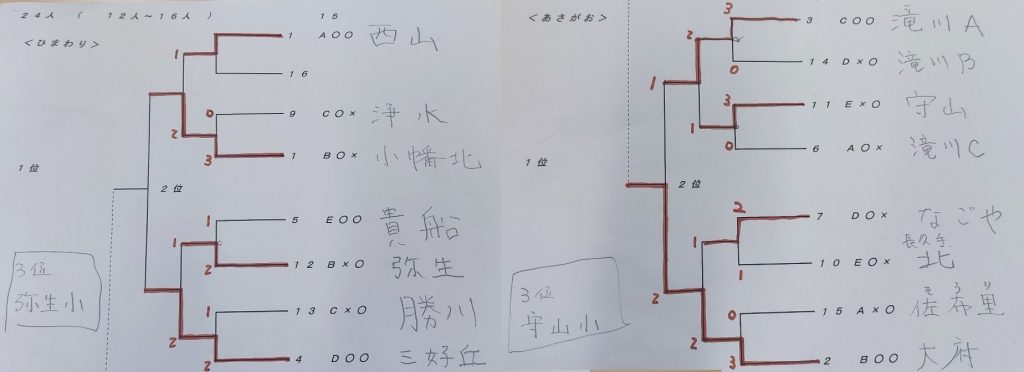 24人 ( 12人~16人 ) 15
<ひまわり>
1 AOO 西山
1
16
0 9 CO× 浄水
2
3 1 BO× 小幡北
1位
2位
1 5 EOO 貴船
1
2 12 B×O 弥生
3位
弥生小
1 13 C×O 勝川
2
2 4 DOO 三好丘
<あさがお>
3 3 COO 滝川A
2
0 14 D×O 滝川B
1
3 11 E×O 守山
1
0 6 AO× 滝川C
1位
2位
2 7 DO× なごや
1
長久手
1 10 EO× 北
3位
守山小
2
そうり
0 15 A×O 佐布里
2
3 2 BOO 大府